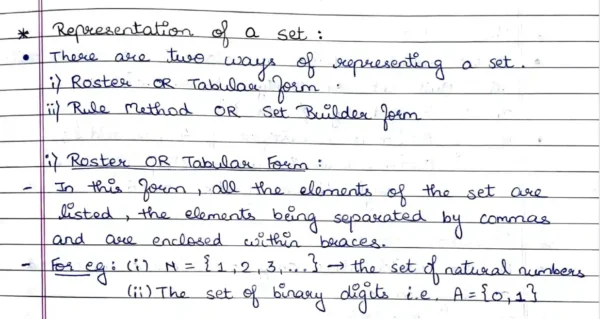 * Representation of a set :
• There are two ways of representing a set .
i) Roster OR Tabular Form .
ii) Rule Method OR Set Builder Form
i) Roster OR Tabular Form :
- In this form, all the elements of the set are
listed, the elements being separated by commas
and are enclosed within braces.
- For eg : (i) N = {1, 2, 3, ...} → the set of natural numbers
(ii) The set of binary digits i.e. A = {0, 1}